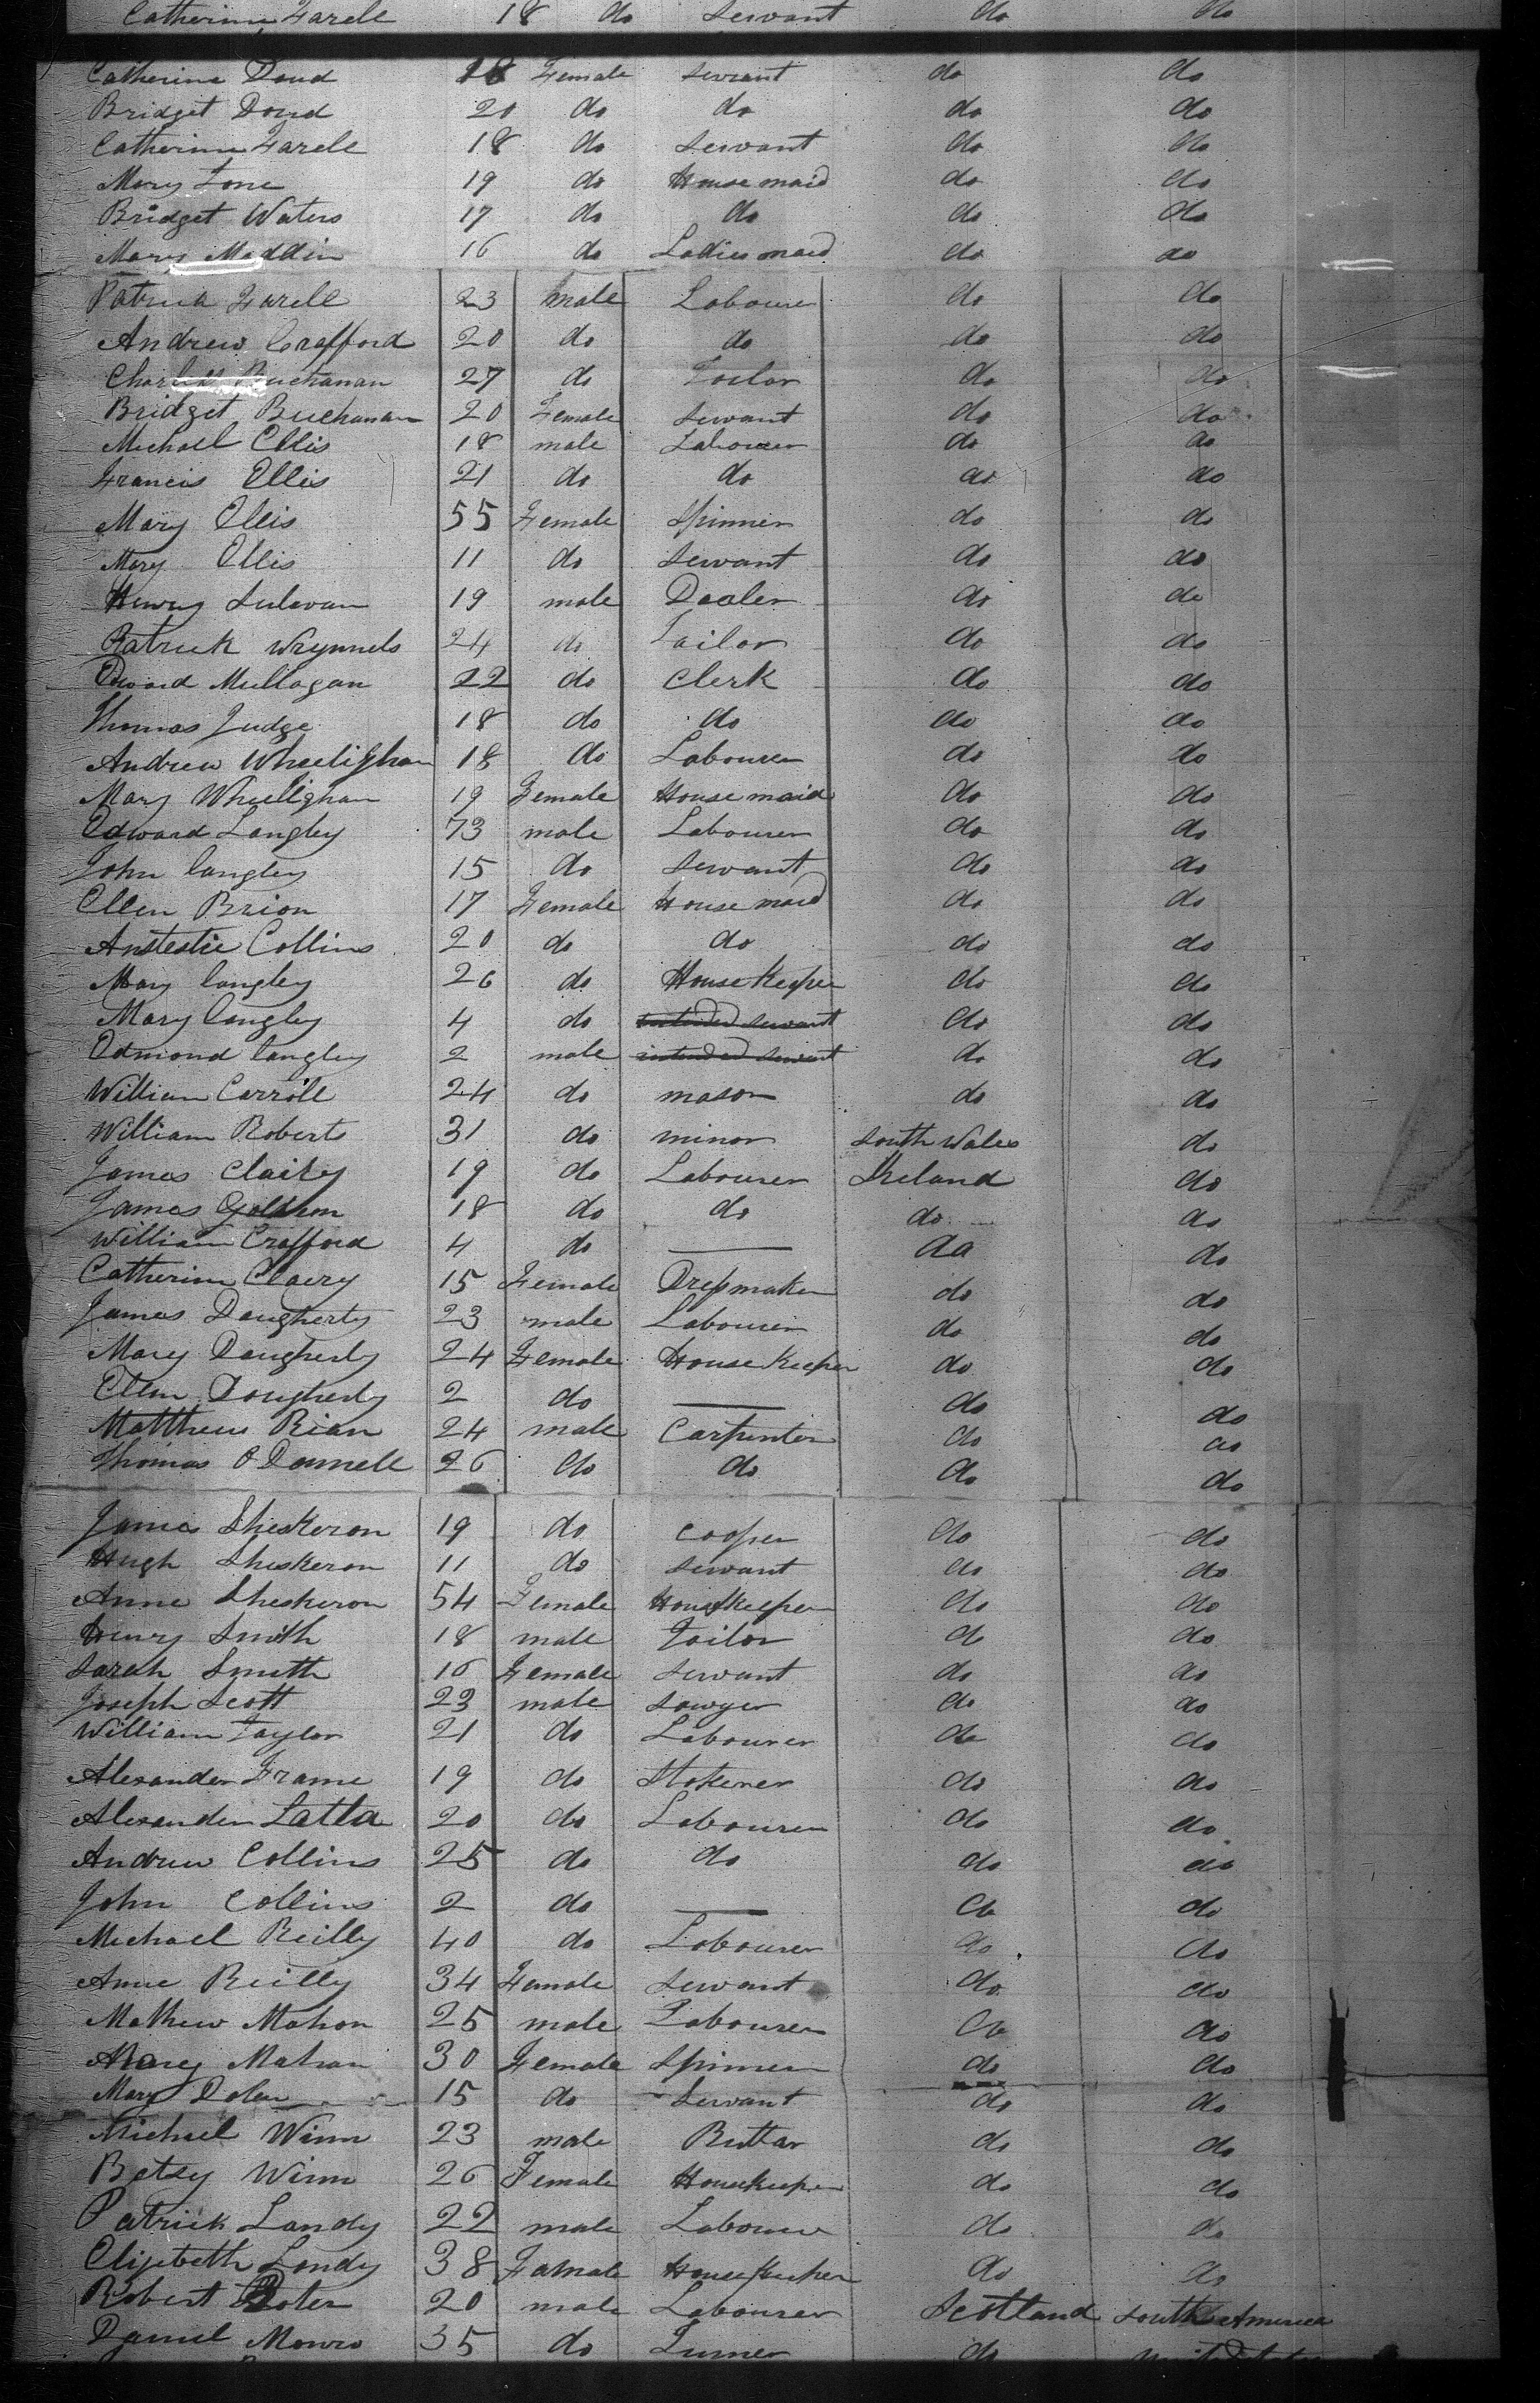 Catherine Farell 18 do servant do do
Catherine Doud 18 Female servant do do
Bridget Doud 20 do do do do
Catherine Farell 18 do servant do do
Mary Lone 19 do House maid do do
Bridget Waters 17 do do do do
Mary Maddin 16 do Ladies maid do do
Patrick Farell 23 male Labourer do do
Andrew Crafford 20 do do do do
Charles Buchanan 27 do Tailor do do
Bridget Buchanan 20 Female servant do do
Michael Ellis 18 male Labourer do do
Francis Ellis 21 do do do do
Mary Ellis 55 Female Spinner do do
Mary Ellis 11 do servant do do
Henry Sulavan 19 male Dealer do do
Patrick Wrynnels 24 do Tailor do do
Edward Mullagan 22 do Clerk do do
Thomas Judge 18 do do do do
Andrew Wheelighan 18 do Labourer do do
Mary Wheelighan 19 Female House maid do do
Edward Langley 73 male Labourer do do
John Langley 15 do servant do do
Ellen Brion 17 Female House maid do do
Anstestie Collins 20 do do do do
Mary Langley 26 do House Keeper do do
Mary Langley 4 do intended servant do do
Edmond Langley 2 male intended servant do do
William Carroll 24 do mason do do
William Roberts 31 do minor South Wales do
James Claity 19 do Labourer Ireland do
James Goldhon 18 do do do do
William Crafford 4 do — do do
Catherine Claery 15 Female Dressmaker do do
James Daugherty 23 male Labourer do do
Mary Daugherty 24 Female House Keeper do do
Ellen Dougherty 2 do — do do
Matthew Rian 24 male Carpenter do do
Thomas O Donnell 26 do do do do
James Sheskeron 19 do Cooper do do
Hugh Sheskeron 11 do servant do do
Anne Sheskeron 54 Female Housekeeper do do
Henry Smith 18 male Tailor do do
Sarah Smith 16 Female servant do do
Joseph Scott 23 male Sawyer do do
William Taylor 21 do Labourer do do
Alexander Frame 19 do Stokener do do
Alexander Latta 20 do Labourer do do
Andrew Collins 25 do do do do
John Collins 2 do — do do
Michael Reilly 40 do Labourer do do
Anne Reilly 34 Female servant do do
Mathew Mahon 25 male Labourer do do
Mary Mahan 30 Female Spinner do do
Mary Dolan 15 do Servant do do
Michael Winn 23 male Buttar do do
Betsy Winn 26 Female Housekeeper do do
Patrick Landy 22 male Labourer do do
Elizebeth Landy 38 Famale House Keeper do do
Robert 20 male Labourer Scotland South America
Daniel Monro 35 do Turner do